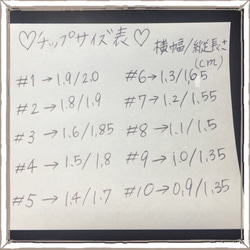 ♡チップサイズ表♡
横幅/縦長さ
(cm)
#1→1.9/2.0
#2→1.8/1.9
#3→1.6/1.85
#4→1.5/1.8
#5→1.4/1.7
#6→1.3/1.65
#7→1.2/1.55
#8→1.1/1.5
#9→1.0/1.35
#10→0.9/1.35